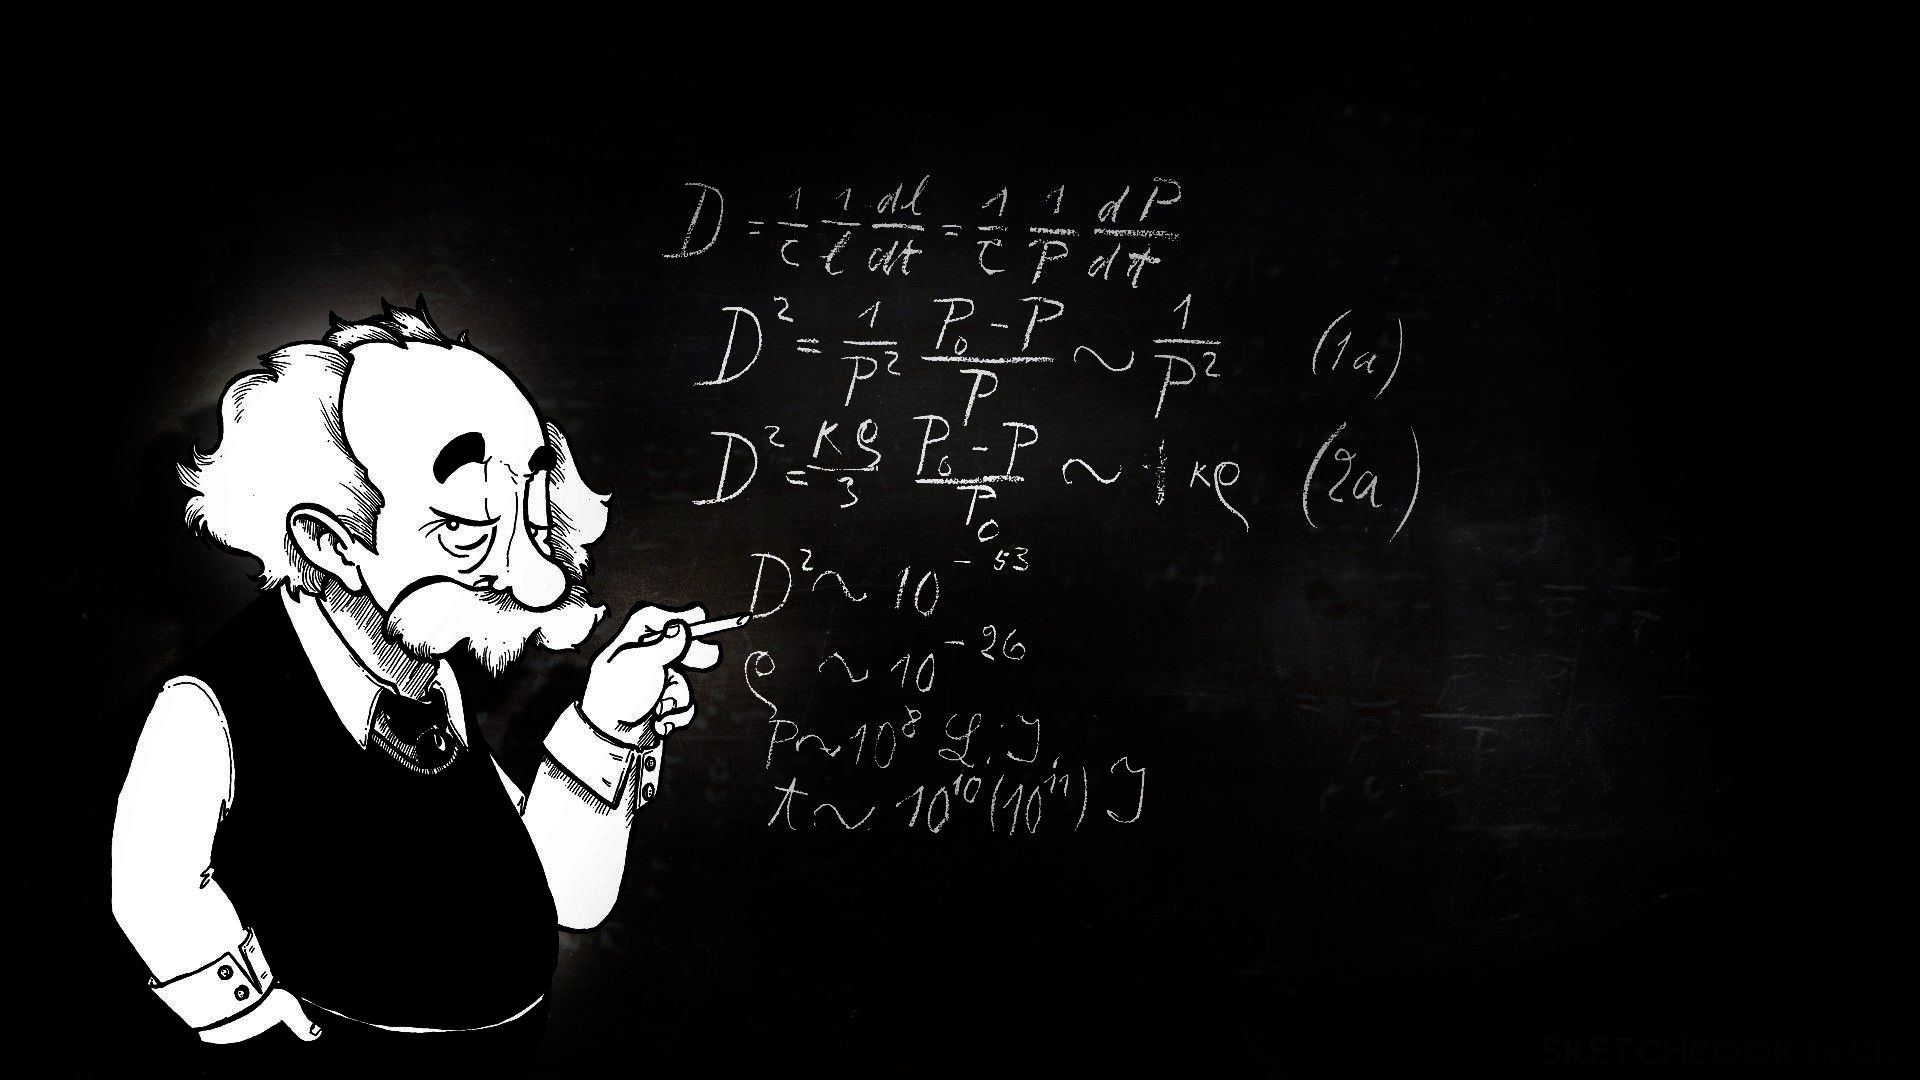 D = 1/c 1/l dl/dt = 1/c 1/P dP/dt
D² = 1/P² (P₀-P)/P ~ 1/P² (1a)
D² = κρ/3 (P₀-P)/P₀ ~ κρ (2a)
D² ~ 10⁻⁵³
ρ ~ 10⁻²⁶
P ~ 10⁸ L.J.
t ~ 10¹⁰(10¹¹) J
SKETCHBOOKJACK